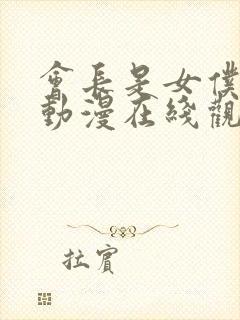 會長是女僕
動漫在綫觀
拉賓